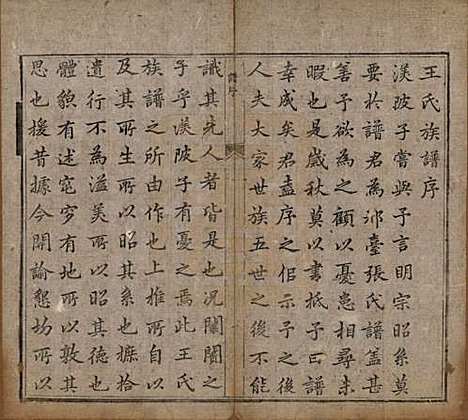 王氏族譜序
渼陂子嘗與予言明宗昭系莫
要於譜君為邢臺張氏譜蓋甚
善予欲為之顧以憂患相尋未
暇也是歲秋莫以書抵予曰譜
幸成矣君盍序之佀示予之後
人夫大家世族五世之後不能
譜序
識其先人者皆是也况闤闠之
子乎渼陂子有憂之焉此王氏
族譜之所由作也上推所
及其所生所以昭其系也摭拾
遺行不為溢美所以昭其德也
體貌有述窀穸有地所以敦其
思也援昔據今開諭懇切所以